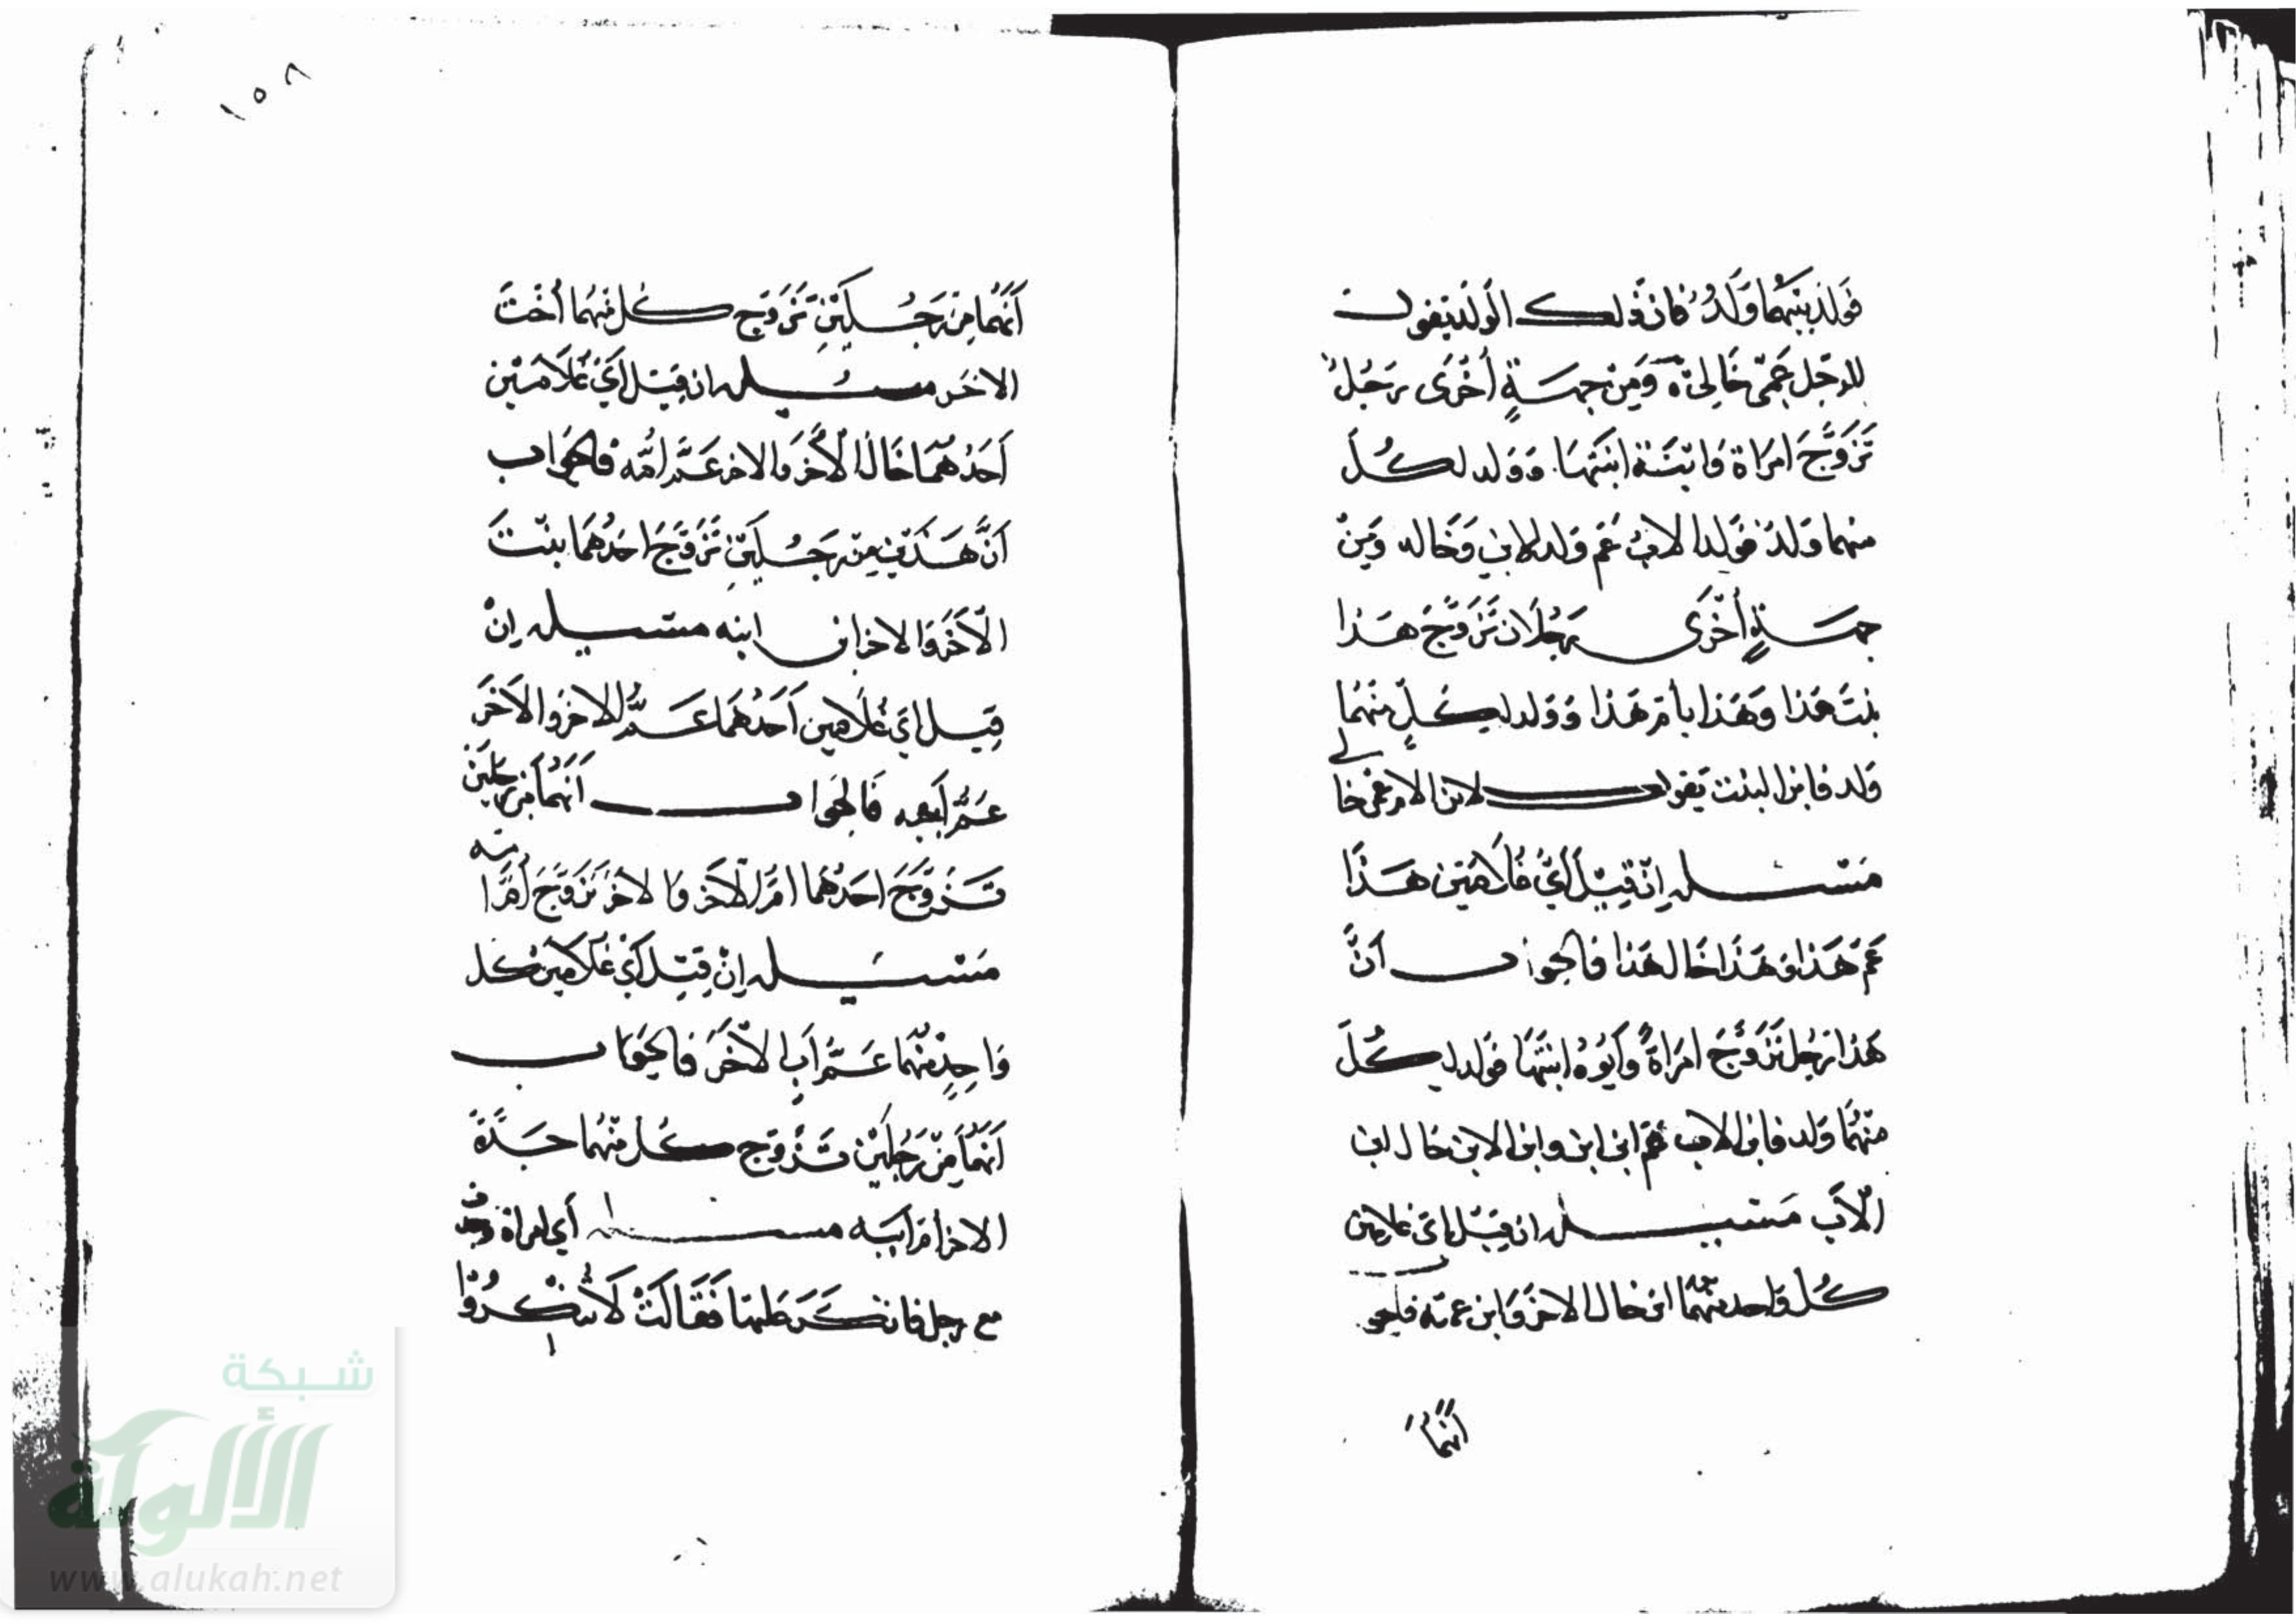 فولد بينهما ولد فان ذلك الولد يقول
للرجل عمي خالي ومن جهة أخرى رجل
تزوج امراة وابنه ابنتها وولد لكل
منهما ولد فولد الاب عم ولد الابن وخاله ومن
جهة أخرى رجلان تزوج هذا
بنت هذا وهذا بأم هذا وولد لكل منهما
ولد فابن البنت يقول لابن الام عمي خالي
مسئله إن قيل أي غلامين هذا
عم هذا وهذا خال هذا فالجواب أن
هذا رجل تزوج امرأة وأبوه ابنتها فولد لكل
منهما ولد فابن الاب عم ابن ابن وابن الابن خال ابن
الأب مسئله ان قيل أي غلامين
كل واحد منهما ابن خال الاخر وابن عمته
أنهما
١٥٨
أنهما من رجلين تزوج كل منهما أخت
الاخر مسئله ان قيل أي غلامين
أحدهما خال الأخر والاخر عم أمه فالجواب
أن هذين من رجلين تزوج احدهما بنت
الأخر والاخر ابنه مسئله إن
قيل اي غلامين أحدهما عم الاخر والأخر
عم أبيه فالجواب أنهما من رجلين
تزوج احدهما ام الأخر والاخر تزوج أم ابيه
مسئله إن قيل أي غلامين كل
واحد منهما عم أب الأخر فالجواب
أنهما من رجلين تزوج كل منهما جدة
الاخر أم أبيه مسئله أي امراة
مع رجل فانكر عليها فقالت لا تنكروا
شبكة
الألوكة
www.alukah.net